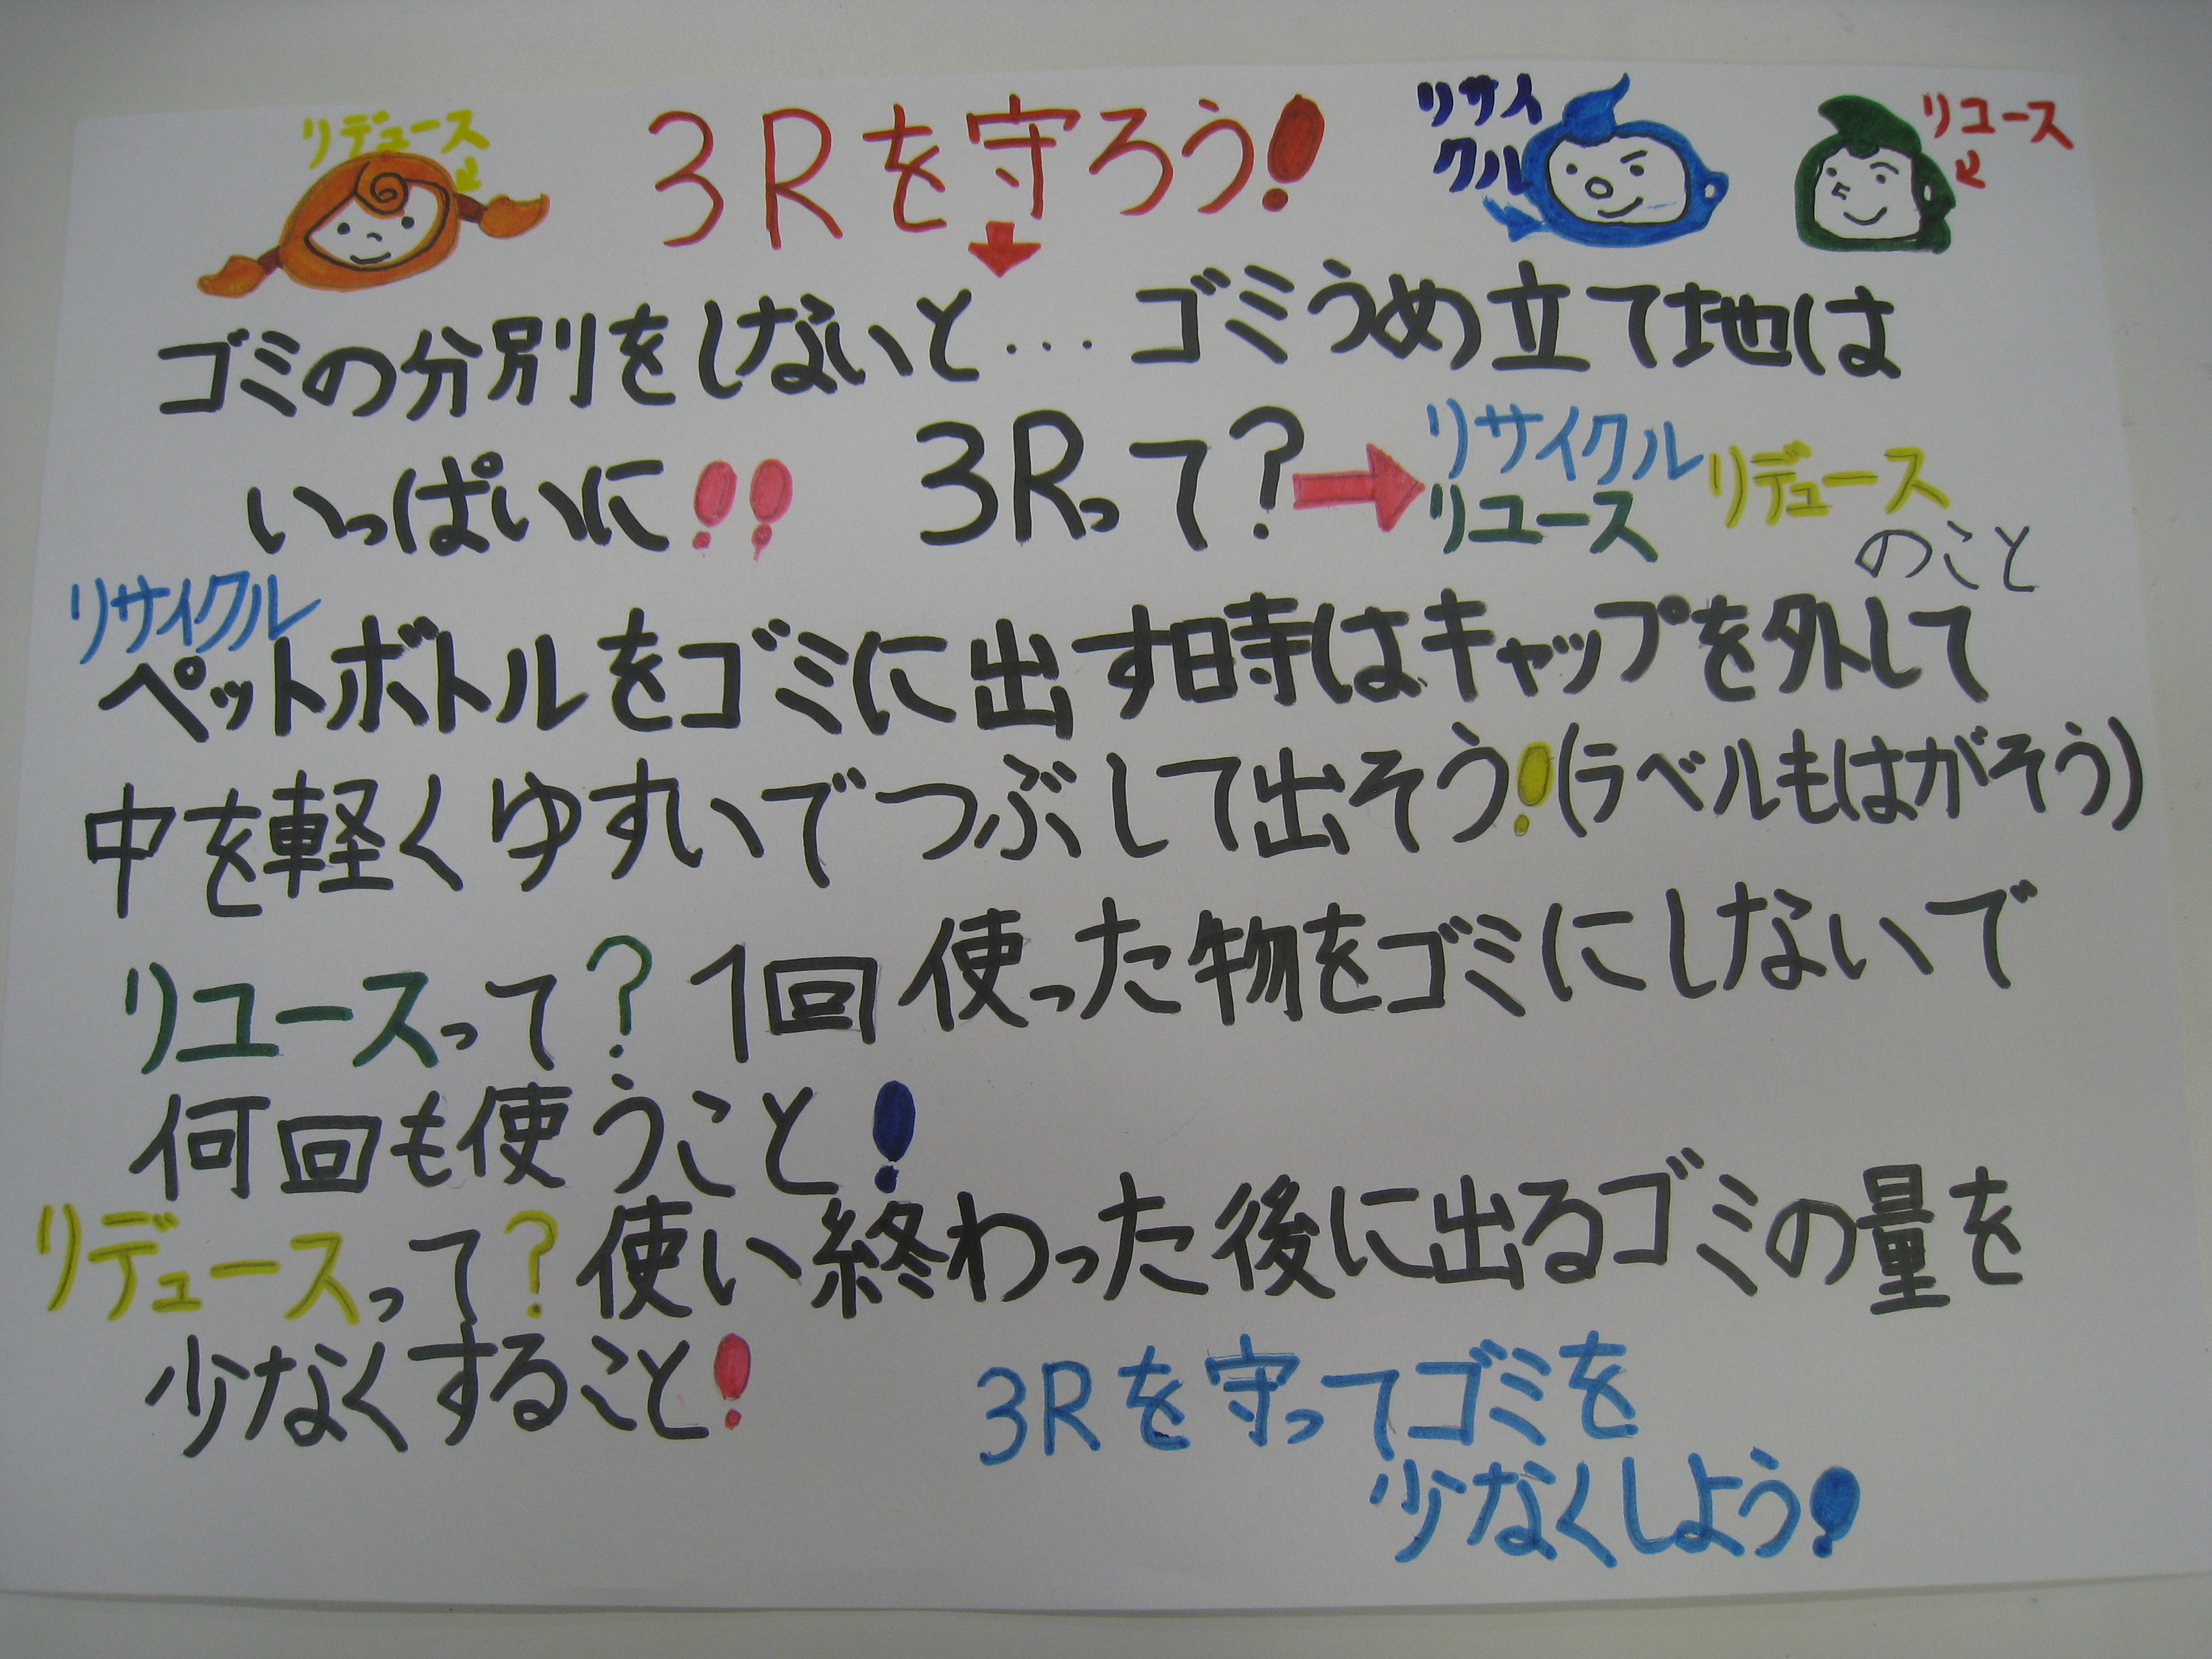 リデュース
3Rを守ろう!
リサイ
クル
リユース
ゴミの分別をしないと…ゴミうめ立て地は
いっぱいに!!
3Rって?→リサイクル
リユース
リデュース
のこと
リサイクル
ペットボトルをゴミに出す時はキャップを外して
中を軽くゆすいでつぶして出そう!(ラベルもはがそう)
リユースって?1回使った物をゴミにしないで
何回も使うこと!
リデュースって?使い終わった後に出るゴミの量を
少なくすること!
3Rを守ってゴミを
少なくしよう!